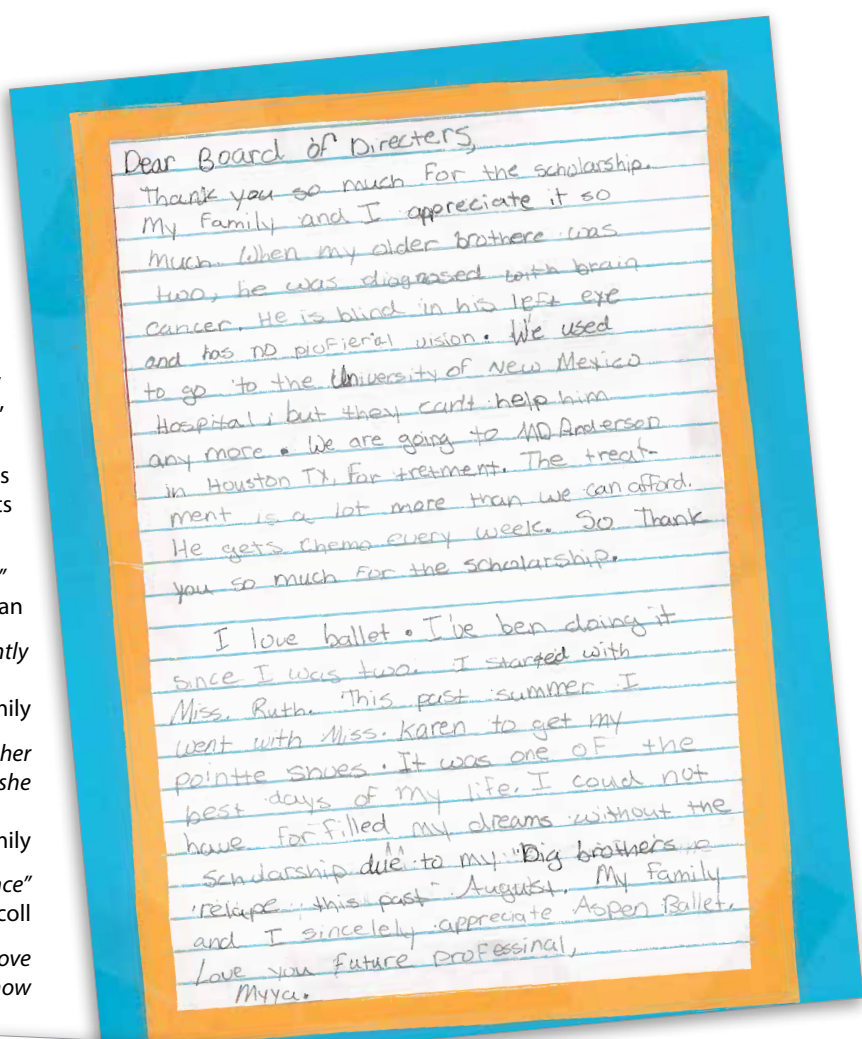 ,
s
ts
"
an
ntly
nily
her
she
nily
nce"
coll
ove
now
Dear Board of Directers,
Thank you so much For the scholarship.
My Family and I appreciate it so
much. When my older brothere was
two, he was diagnosed with brain
cancer. He is blind in his left eye
and has no piofieral vision. We used
to go to the University of New Mexico
Hospital, but they can't help him
any more. We are going to MD Anderson
in Houston TX, for tretment. The treat-
ment is a lot more than we can afford.
He gets Chemo every week. So Thank
you so much For the scholarship.
I love ballet. I've ben doing it
since I was two. I started with
Miss. Ruth. This past summer I
went with Miss. Karen to get my
pointte shoes. It was one of the
best days of my life. I coud not
have forfilled my dreams without the
scholarship due to my Big brothers
relapse this past August. My Family
and I sincelely appreciate Aspen Ballet.
Love you Future proFessinal,
Myya.